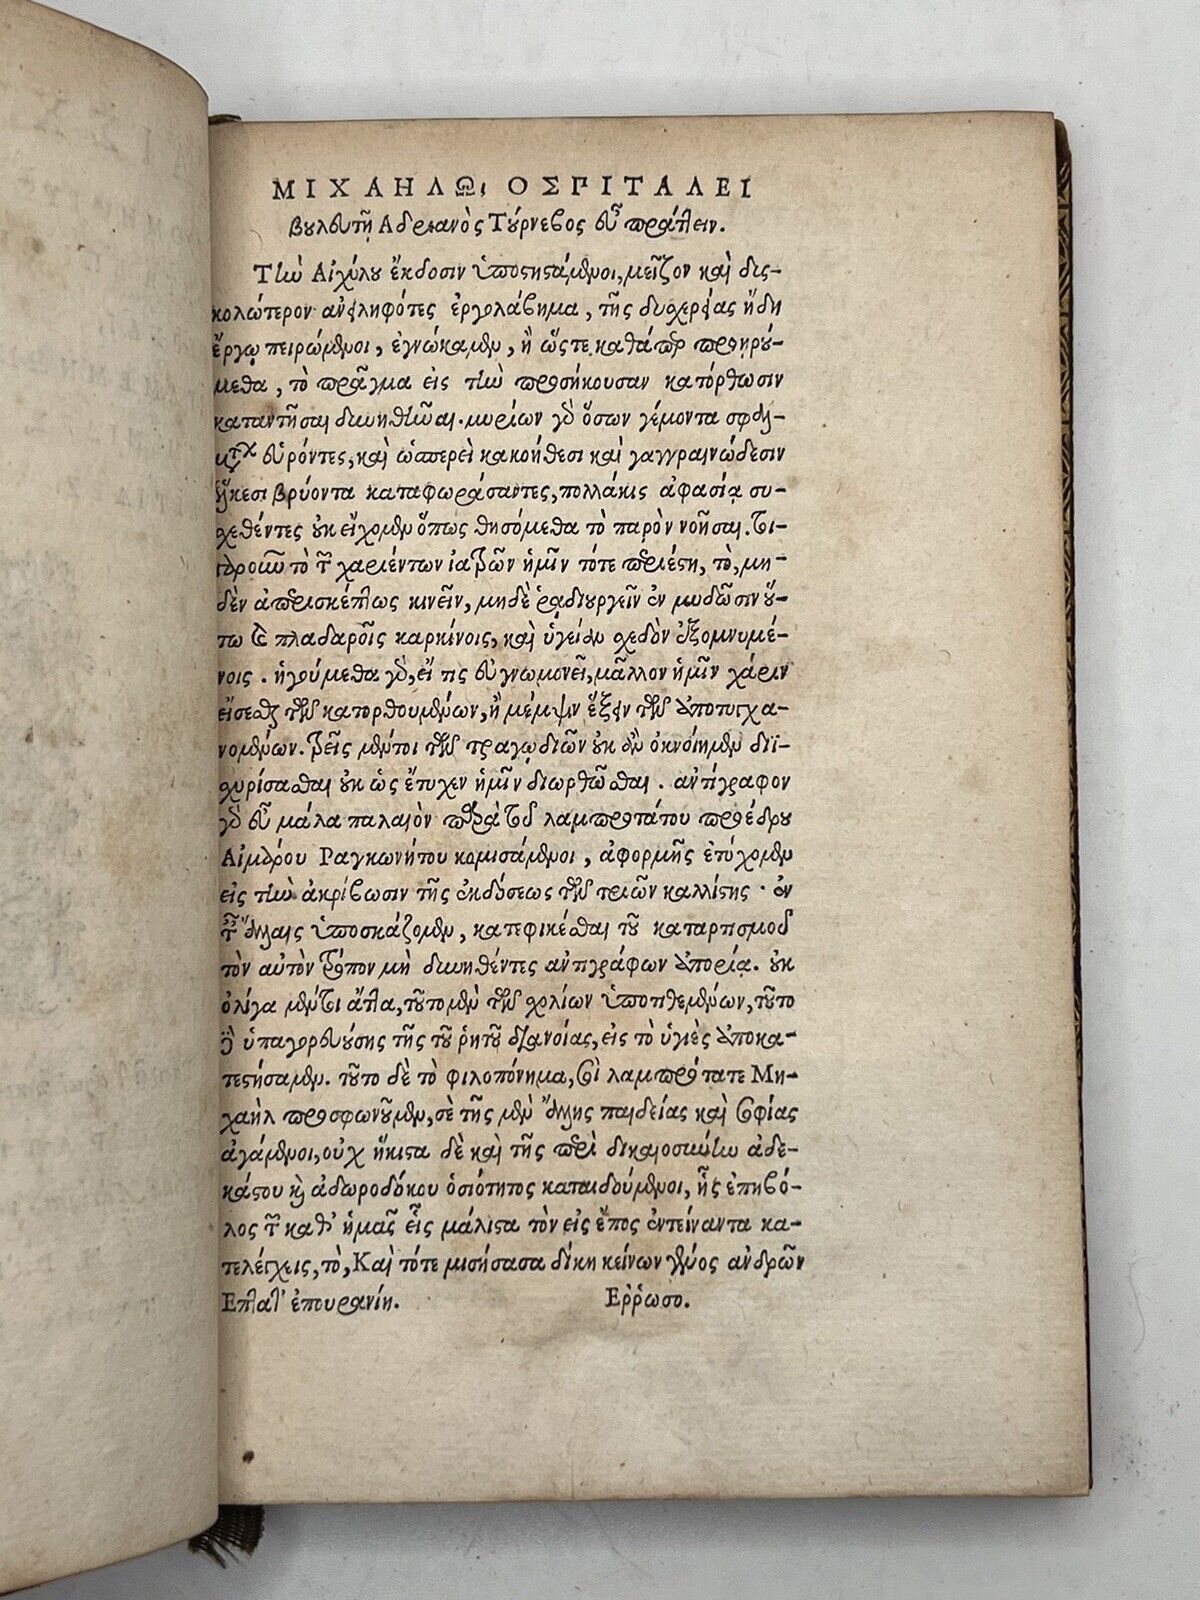 ΜΙΧΑΗΛΩ, ΟΣΠΙΤΑΛΕΙ
βουλευτῇ Αδριανὸς Τύρνεβος εὖ πράττειν.
Τὴν Αἰσχύλου ἔκδοσιν ὑποστησάμενοι, μεῖζον καὶ δυσ-
κολώτερον ἀνειληφότες ἐργολάβημα, τῆς δυσχερείας ἤδη
ἔργῳ πειρώμενοι, ἐγνώκαμεν, ἢ ὥστε καθάπερ προῃρού-
μεθα, τὸ πρᾶγμα εἰς τὴν προσήκουσαν κατόρθωσιν
καταντῆσαι δυνηθῆναι. μυρίων γὰρ ὅσων γέμοντα σφαλ-
μάτων εὑρόντες, καὶ ὡσπερεὶ κακοήθεσι καὶ γαγγραινώδεσιν
ἕλκεσι βρύοντα καταφωράσαντες, πολλάκις ἀφασίᾳ συ-
σχεθέντες οὐκ εἴχομεν ὅπως θησόμεθα τὸ παρὸν νοῆσαι.
τὸ τῶν χαριέντων ἰατρῶν ἡμῖν τότε περιέστη, τὸ, μη-
δὲν ἀπερισκέπτως κινεῖν, μηδὲ ῥᾳδιουργεῖν ἐν μυδῶσιν οὕ-
τω καὶ πλαδαροῖς καρκίνοις, καὶ ὑγείαν σχεδὸν ἐξομνυμέ-
νοις. ἡγούμεθα γὰρ, εἴ τις εὐγνωμονεῖ, μᾶλλον ἡμῖν χάριν
εἴσεσθαι τῶν κατορθουμένων, ἢ μέμψιν ἕξειν τῶν ἀποτυγχα-
νομένων. τρεῖς μέντοι τῶν τραγῳδιῶν οὐκ ἂν ὀκνοίημεν διϊ-
σχυρίσασθαι οὐκ ὡς ἔτυχεν ἡμῖν διωρθῶσθαι. ἀντίγραφον
γὰρ εὖ μάλα παλαιὸν παρὰ τοῦ λαμπροτάτου προέδρου
Αἰμάρου Ραγκωνήτου κομισάμενοι, ἀφορμῆς ἐτύχομεν
εἰς τὴν ἀκρίβωσιν τῆς ἐκδόσεως τῶν τριῶν καλλίστης· ἐν
ταῖς ἄλλαις ὑποσκάζομεν, κατεφικέσθαι τοῦ καταρτισμοῦ
τὸν αὐτὸν τρόπον μὴ δυνηθέντες ἀντιγράφων ἀπορίᾳ. οὐκ
ὀλίγα μέντοι ἄττα, τοῦτο μὲν τῶν σχολίων ὑποτιθεμένων, τοῦτο
δὲ ὑπαγορευούσης τῆς τοῦ ῥητοῦ διανοίας, εἰς τὸ ὑγιὲς ἀποκα-
τεστήσαμεν. τοῦτο δὲ τὸ φιλοπόνημα, σοὶ λαμπρότατε Μι-
χαὴλ προσφωνοῦμεν, σὲ τῆς μὲν ἄλλης παιδείας καὶ σοφίας
ἀγάμενοι, οὐχ ἥκιστα δὲ καὶ τῆς περὶ δικαιοσύνην ἀδε-
κάστου καὶ ἀδωροδόκου ὁσιότητος καταιδούμενοι, ἧς ἐπηβό-
λος τῶν καθ' ἡμᾶς εἷς μάλιστα τὸν εἰς ἔπος ἐντείναντα κα-
τελέγχεις, τὸ, Καὶ τότε μισήσασα δίκη κείνων γένος ἀνδρῶν
Επτατ' ἐπουρανίη. Ερρωσο.